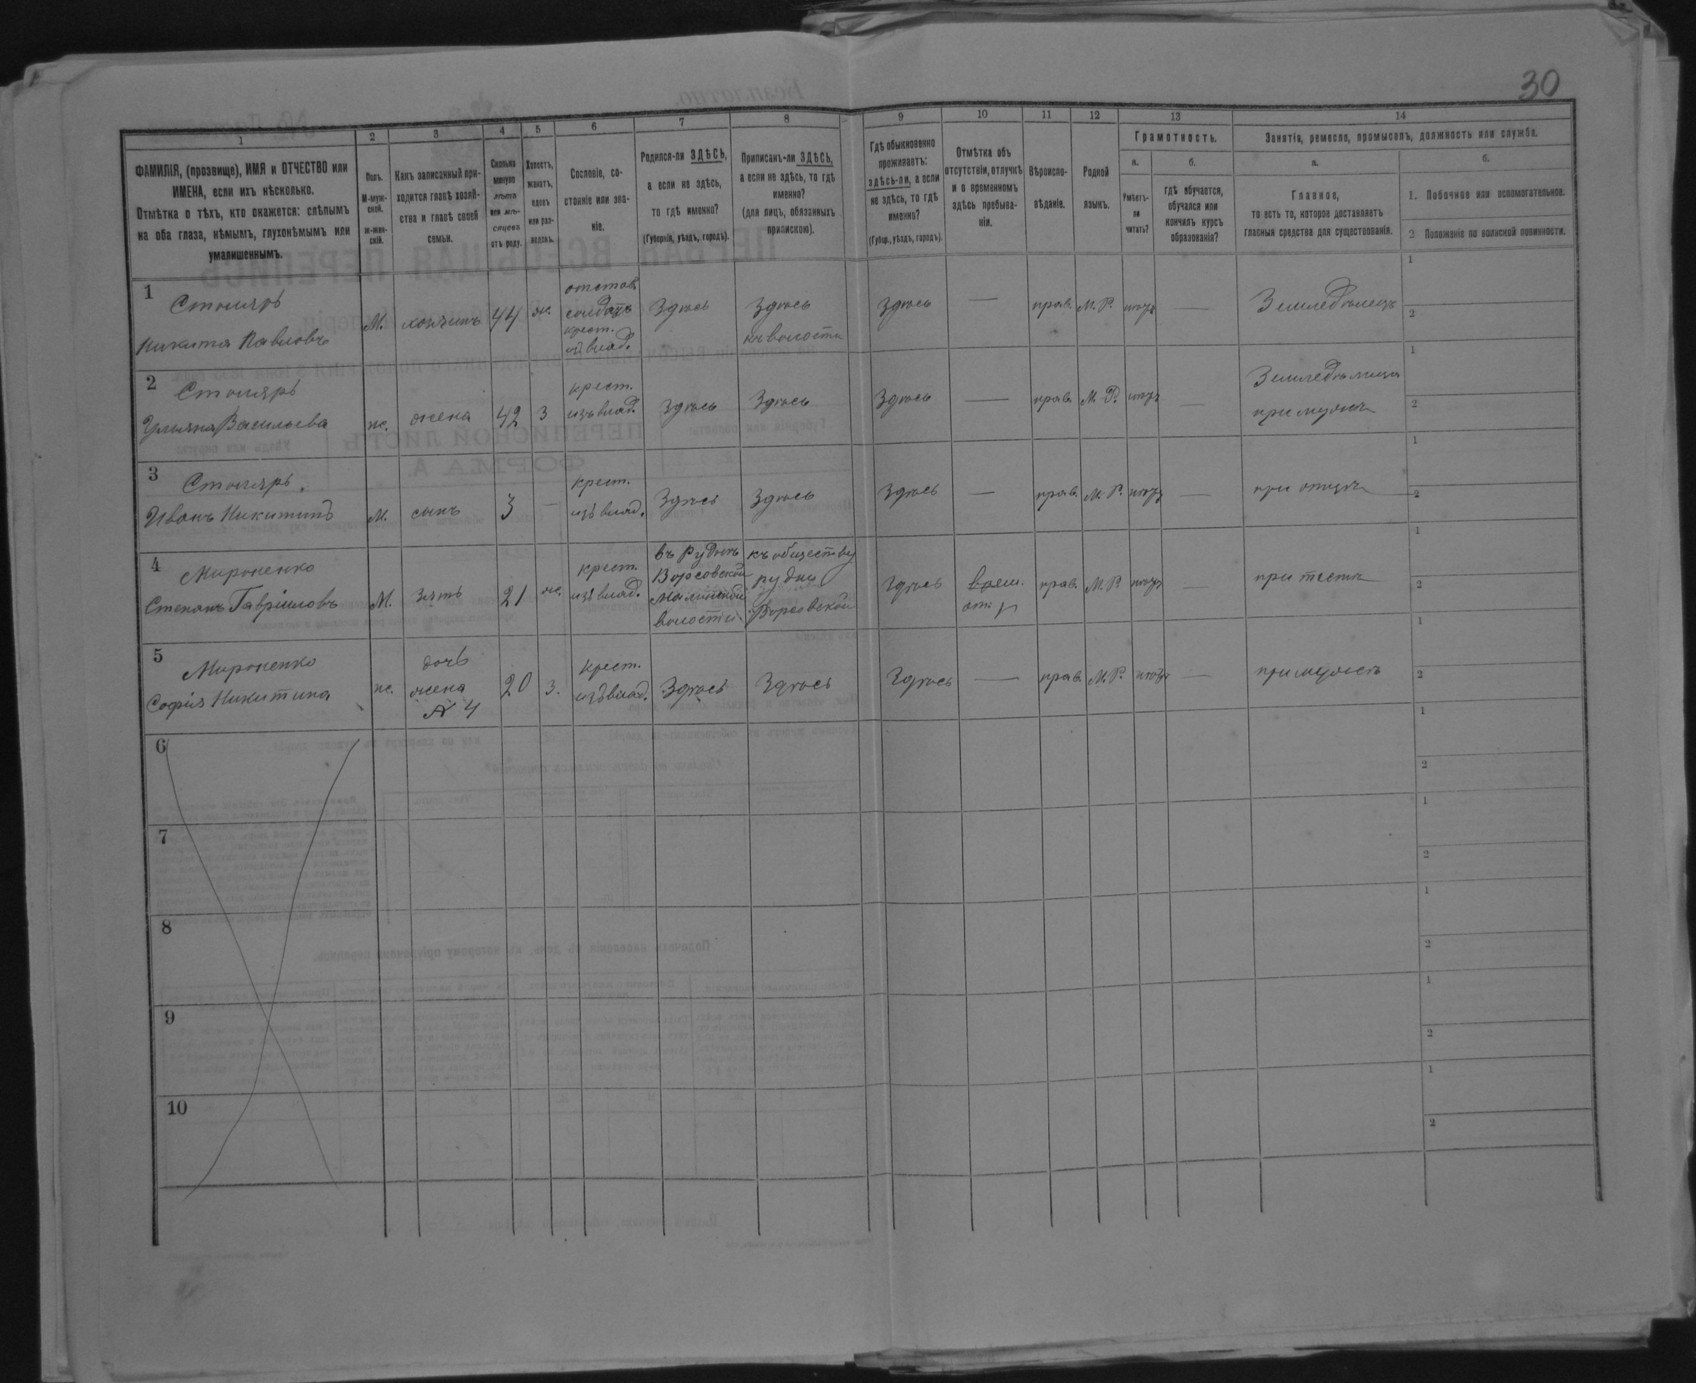 30
1 2 3 4 5 6 7 8 9 10 11 12 13 14
ФАМИЛІЯ, (прозвище), ИМЯ и ОТЧЕСТВО или ИМЕНА, если ихъ нѣсколько.
Отмѣтка о тѣхъ, кто окажется: слѣпымъ на оба глаза, нѣмымъ, глухонѣмымъ или умалишеннымъ.
Полъ.
М-муж-
ской.
ж-жен-
скій.
Какъ записанный при-
ходится главѣ хозяй-
ства и главѣ своей
семьи.
Сколько
минуло
лѣтъ
или мѣ-
сяцевъ
отъ роду.
Холостъ,
женатъ,
вдовъ
или раз-
веденъ.
Сословіе, со-
стояніе или зва-
ніе.
Родился-ли ЗДѢСЬ,
а если не здѣсь,
то гдѣ именно?
(Губернія, уѣздъ, городъ).
Приписанъ-ли ЗДѢСЬ,
а если не здѣсь, то гдѣ
именно?
(для лицъ, обязанныхъ
припискою).
Гдѣ обыкновенно
проживаетъ:
здѣсь-ли, а если
не здѣсь, то гдѣ
именно?
(Губер., уѣздъ, городъ).
Отмѣтка объ
отсутствіи, отлучкѣ
и о временномъ
здѣсь пребыва-
ніи.
Вѣроиспо-
вѣданіе.
Родной
языкъ.
Грамотность.
а.
Умѣетъ-
ли
читать?
б.
гдѣ обучается,
обучался или
кончилъ курсъ
образованія?
Занятіе, ремесло, промыселъ, должность или служба.
а.
Главное,
то есть то, которое доставляетъ
главныя средства для существованія.
б.
1. Побочное или вспомогательное.
2 Положеніе по воинской повинности.
1 Столяръ
Никита Павловъ
М. хозяинъ 44 ж.
отстав.
солдатъ
крест.
влад.
Здѣсь
Здѣсь
къ волости
Здѣсь — прав. М. Р. нѣтъ — Земледѣлецъ
1
2
2 Столяръ
Ульяна Васильева
ж. жена 42 з
крест.
изъ влад.
Здѣсь Здѣсь Здѣсь — прав. М. Р. нѣтъ —
Земледѣлица
при мужѣ
1
2
3 Столяръ.
Иванъ Никитинъ
М. сынъ 3 —
крест.
изъ влад.
Здѣсь Здѣсь Здѣсь — прав. М. Р. нѣтъ — при отцѣ
1
2
4 Мироненко
Степанъ Гавріиловъ
М. зять 21 ж.
крест.
изъ влад.
въ Руднѣ
Ворсовской
Малинской
волости.
къ обществу
рудни
Ворсовской
здѣсь
врем.
прав. М. Р. нѣтъ — при тестѣ
1
2
5 Мироненко
Софія Никитина
ж.
дочь
жена
№ 4
20 з.
крест.
изъ влад.
Здѣсь Здѣсь Здѣсь — прав. М. Р. нѣтъ — при мужѣ
1
2
6
1
2
7
1
2
8
1
2
9
1
2
10
1
2